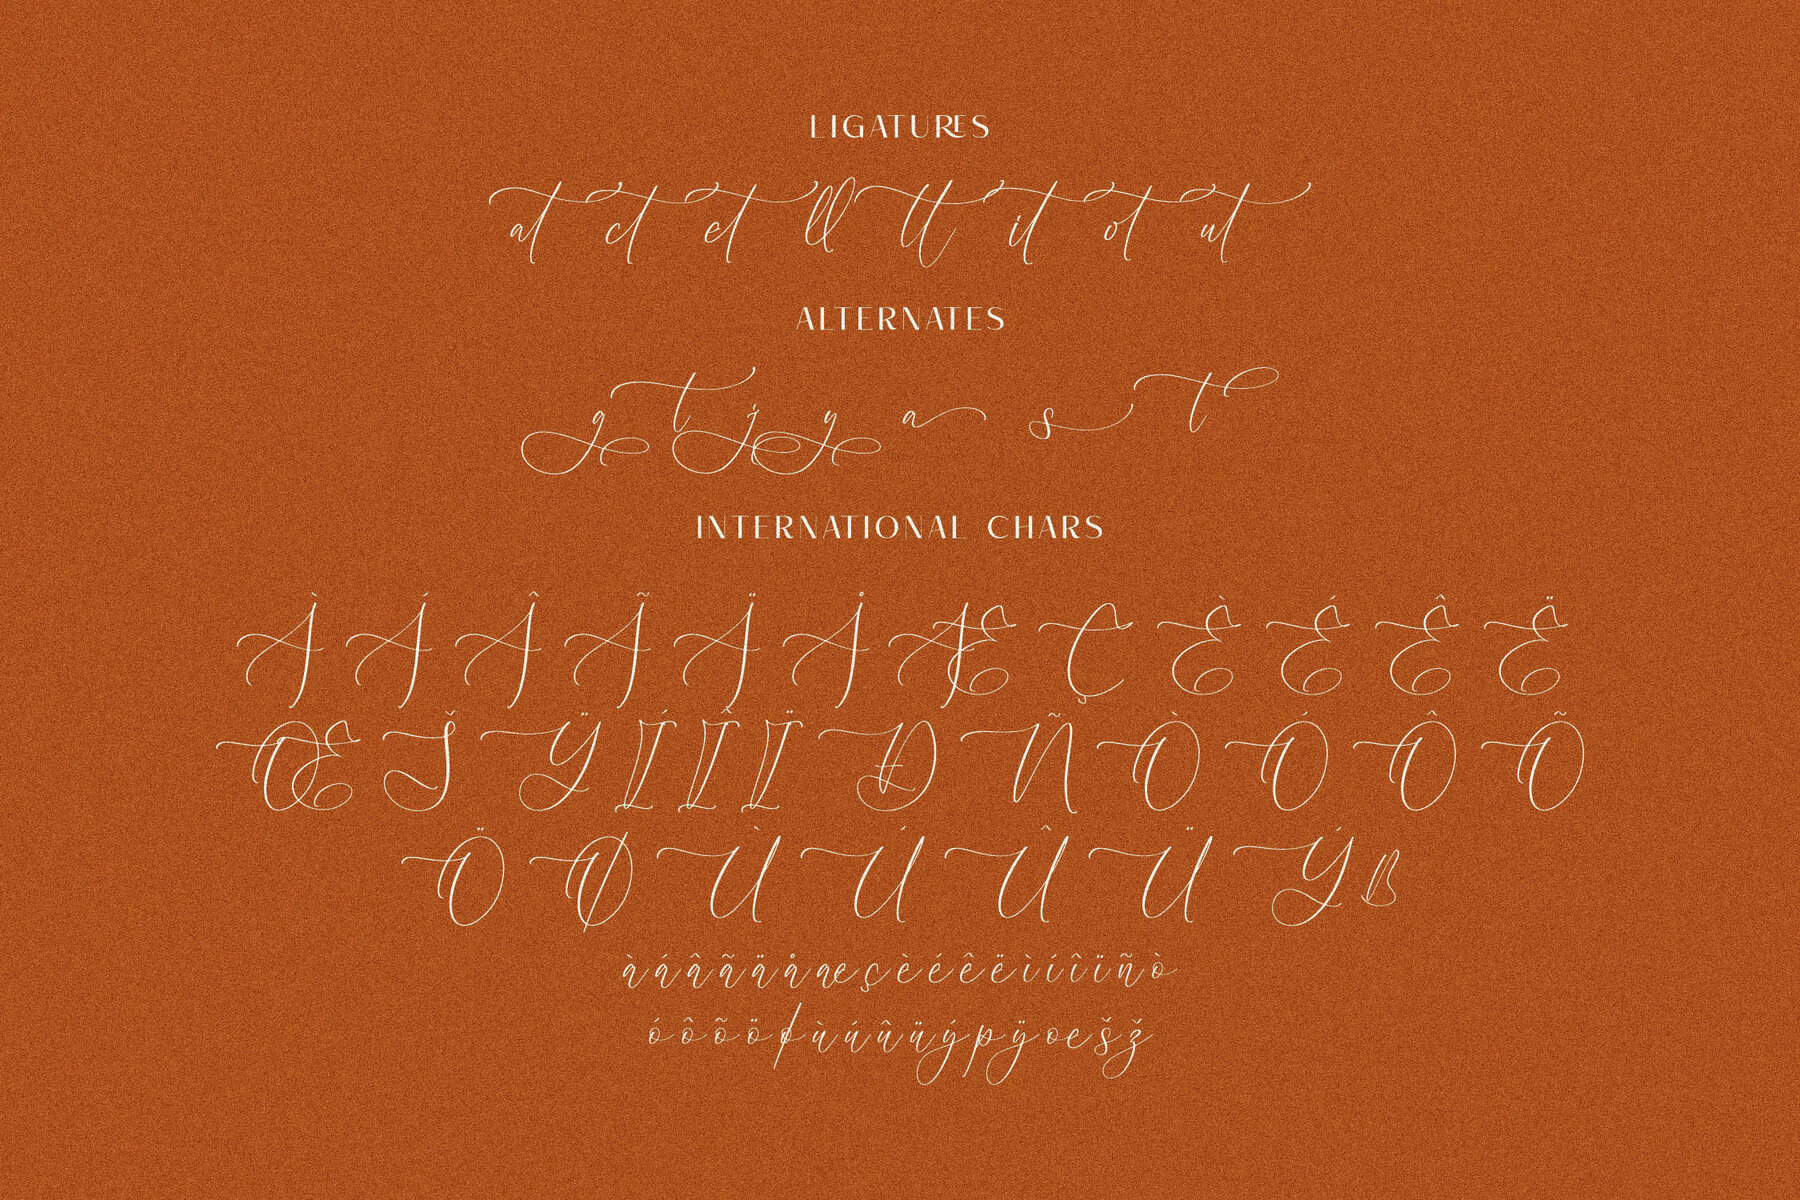 LIGATURES
at ct et ll tt it ot ut
ALTERNATES
g t j y a s t
INTERNATIONAL CHARS
À Á Â Ã Ä Å Æ Ç È É Ê Ë
Œ Š Ÿ Í Î Ï Ð Ñ Ò Ó Ô Õ
Ö Ø Ù Ú Û Ü Ý ß
à á â ã ä å æ ç è é ê ë ì í î ï ñ ò
ó ô õ ö ø ù ú û ü ý þ ÿ œ š ž